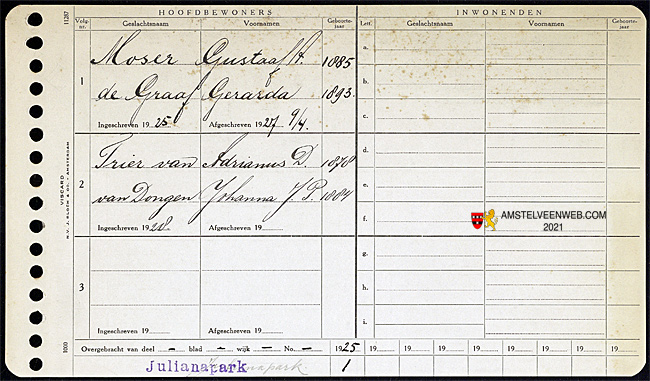 HOOFDBEWONERS
INWONENDEN
Volg-nr. Geslachtsnaam Voornamen Geboorte-jaar
Lett. Geslachtsnaam Voornamen Geboorte-jaar
11287
1
Moser Gustaaf H. 1885
de Graaf Gerarda 1893
Ingeschreven 1925 Afgeschreven 1927 9/4.
a.
b.
c.
VISCARD
N.V. J. RUSCH & CO. - AMSTERDAM
2
Trier van Adrianus D. 1878
van Dongen Johanna J. P. 1884
Ingeschreven 1928 Afgeschreven 19
d.
e.
f.
AMSTELVEENWEB.COM
2021
3
Ingeschreven 19 Afgeschreven 19
g.
h.
i.
1000
Overgebracht van deel – blad – wijk – No. – 1925 19 19 19 19 19 19 19
Julianapark Julianapark. 1